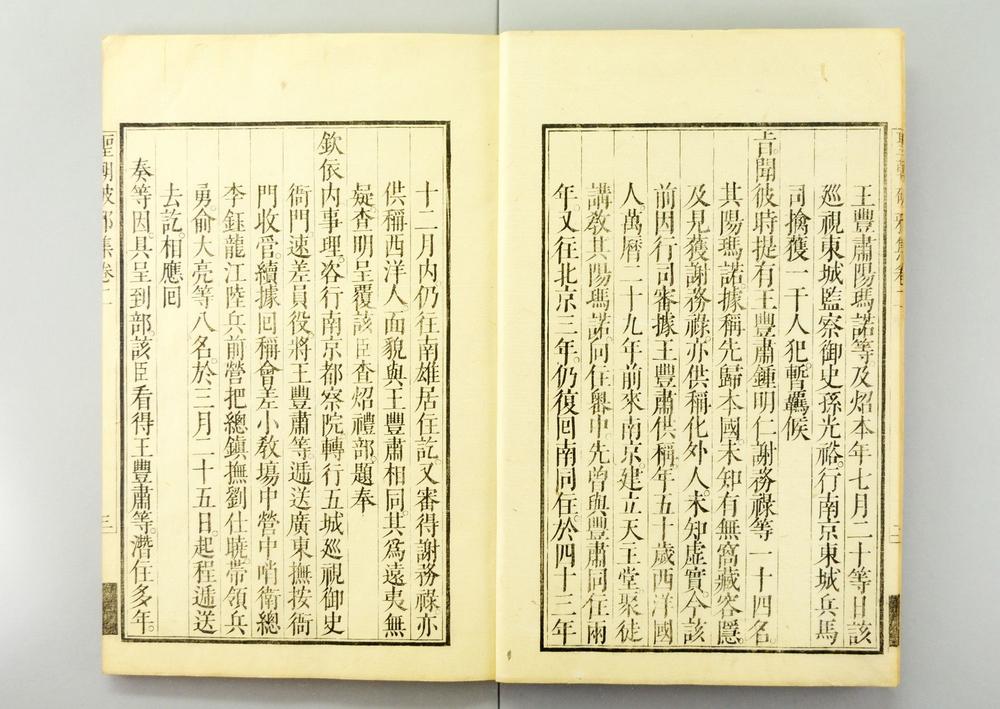 王豐肅陽瑪諾等及炤本年七月二十等日該
巡視東城監察御史孫光裕行南京東城兵馬
司擒獲一干人犯。暫羈候
旨。聞彼時提有王豐肅鍾明仁謝務祿等一十四名。
其陽瑪諾。據稱先歸本國。未知有無窩藏容隱。
及見獲謝務祿。亦供稱化外人。未知虛實。今該
前因行司審據王豐肅供稱。年五十歲西洋國
人萬曆二十九年前來南京。建立天王堂聚徒
講教。其陽瑪諾。向住粵中。先曾與豐肅同住兩
年。又往北京三年。仍復回南同住。於四十三年
十二月內仍往南雄居住訖。又審得謝務祿亦
供稱西洋人面貌與王豐肅相同。其爲遠夷無
疑。查明呈覆該臣查炤禮部。題奉
欽依內事理。咨行南京都察院轉行五城巡視御史
衙門。速差員役將王豐肅等。遞送廣東撫按衙
門收管。續據回稱會差小教場中營中哨衛總
李鈺龍江陸兵前營把總鎮撫劉仕曉帶領兵
勇。俞大亮等八名。於三月二十五日。起程遞送
去訖。相應回
奏等因具呈到部該臣看得王豐肅等。潛住多年。
聖朝破邪集卷二
三